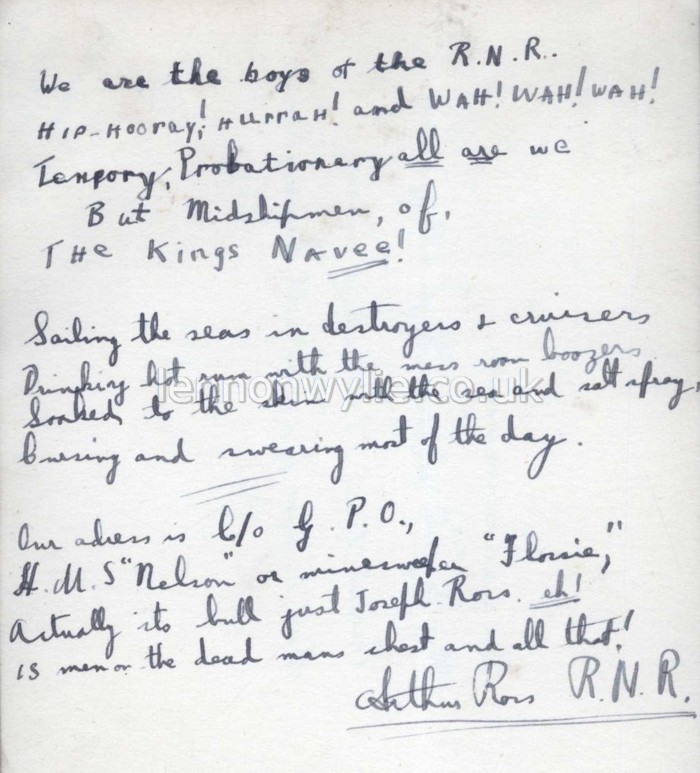 We are the boys of the R.N.R.
HIP-HOORAY! HURRAH! and WAH! WAH! WAH!
Tempory, Probationary all are we
But Midshipmen, of,
THe Kings Navee!
Sailing the seas in destroyers & cruisers
Drinking hot rum with the mess room boozers
Soaked to the skin with the sea and salt spray,
Cursing and swearing most of the day.
Our adress is C/o G.P.O.,
H.M.S "Nelson" or minesweeper "Flossie,"
Actually its bull just Joseph Ross. eh!
15 men on the dead mans chest and all that!
Arthur Ross R.N.R.
lennonwylie.co.uk